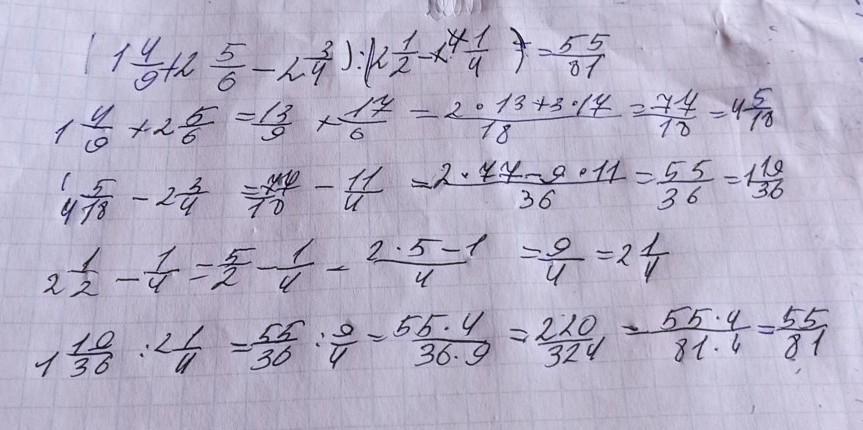 ( 1 4/9 + 2 5/6 - 2 3/4 ) : ( 2 1/2 - 1/4 ) = 55/81
1 4/9 + 2 5/6 = 13/9 + 17/6 = 2·13+3·17/18 = 77/18 = 4 5/18
4 5/18 - 2 3/4 = 77/18 - 11/4 = 2·77-9·11/36 = 55/36 = 1 19/36
2 1/2 - 1/4 = 5/2 - 1/4 - 2·5-1/4 = 9/4 = 2 1/4
1 19/36 : 2 1/4 = 55/36 : 9/4 = 55·4/36·9 = 220/324 = 55·4/81·4 = 55/81